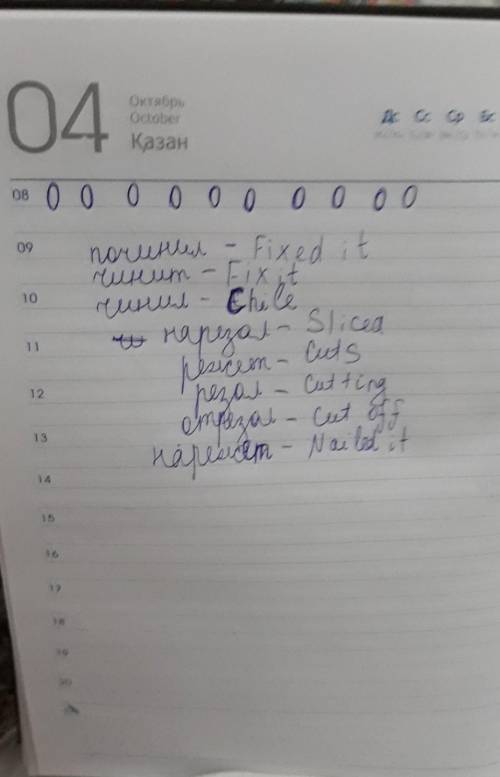 04
Октябрь
October
Қазан
Дс Сс Ср Бс
08 0 0 0 0 0 0 0 0 0 0
09 починил - Fixed it
чинит - Fix it
10 чинил - Chile
11 нарезал - Sliced
режет - Cuts
12 резал - Cutting
отрезал - Cut off
13 нарежет - Nailed it
14
15
16
17
18
19
20